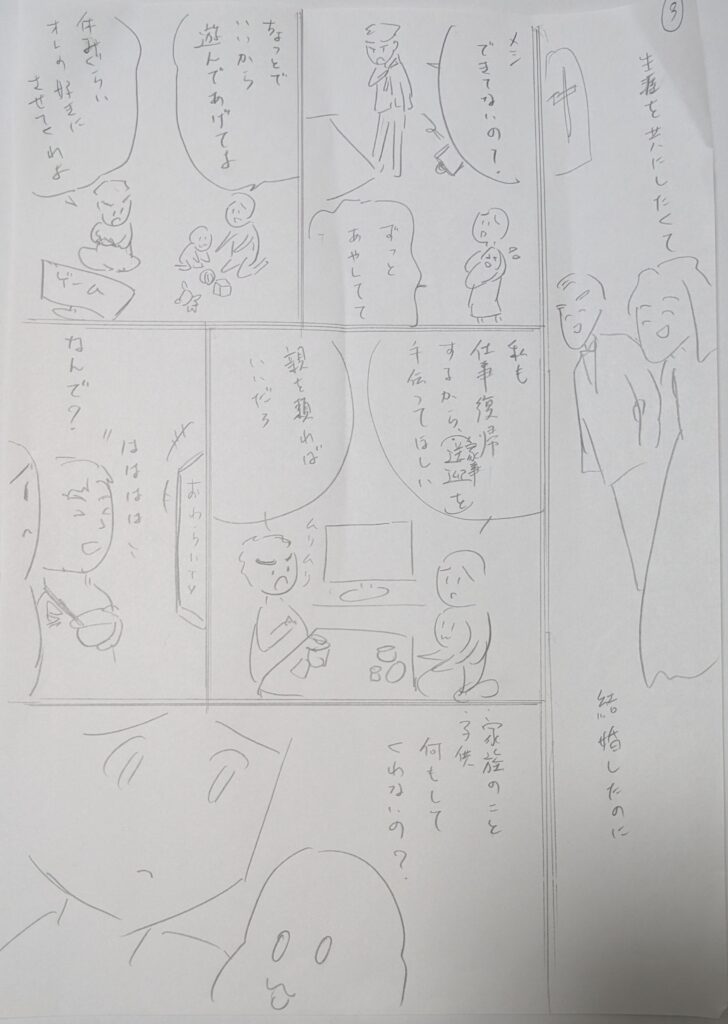 3
生涯を共にしたくて
結婚したのに
メシ
できてないの?
ずっと
あやしてて
ちょっとで
いいから
遊んであげてよ
休みぐらい
オレの好きに
させてくれよ
ゲーム
私も
仕事復帰
するから、送迎を
家事
手伝ってほしい
親を頼れば
いいだろ
ムリムリ
おわらいTV
はははは
なんで?
家族のこと
子供
何もして
くれないの?